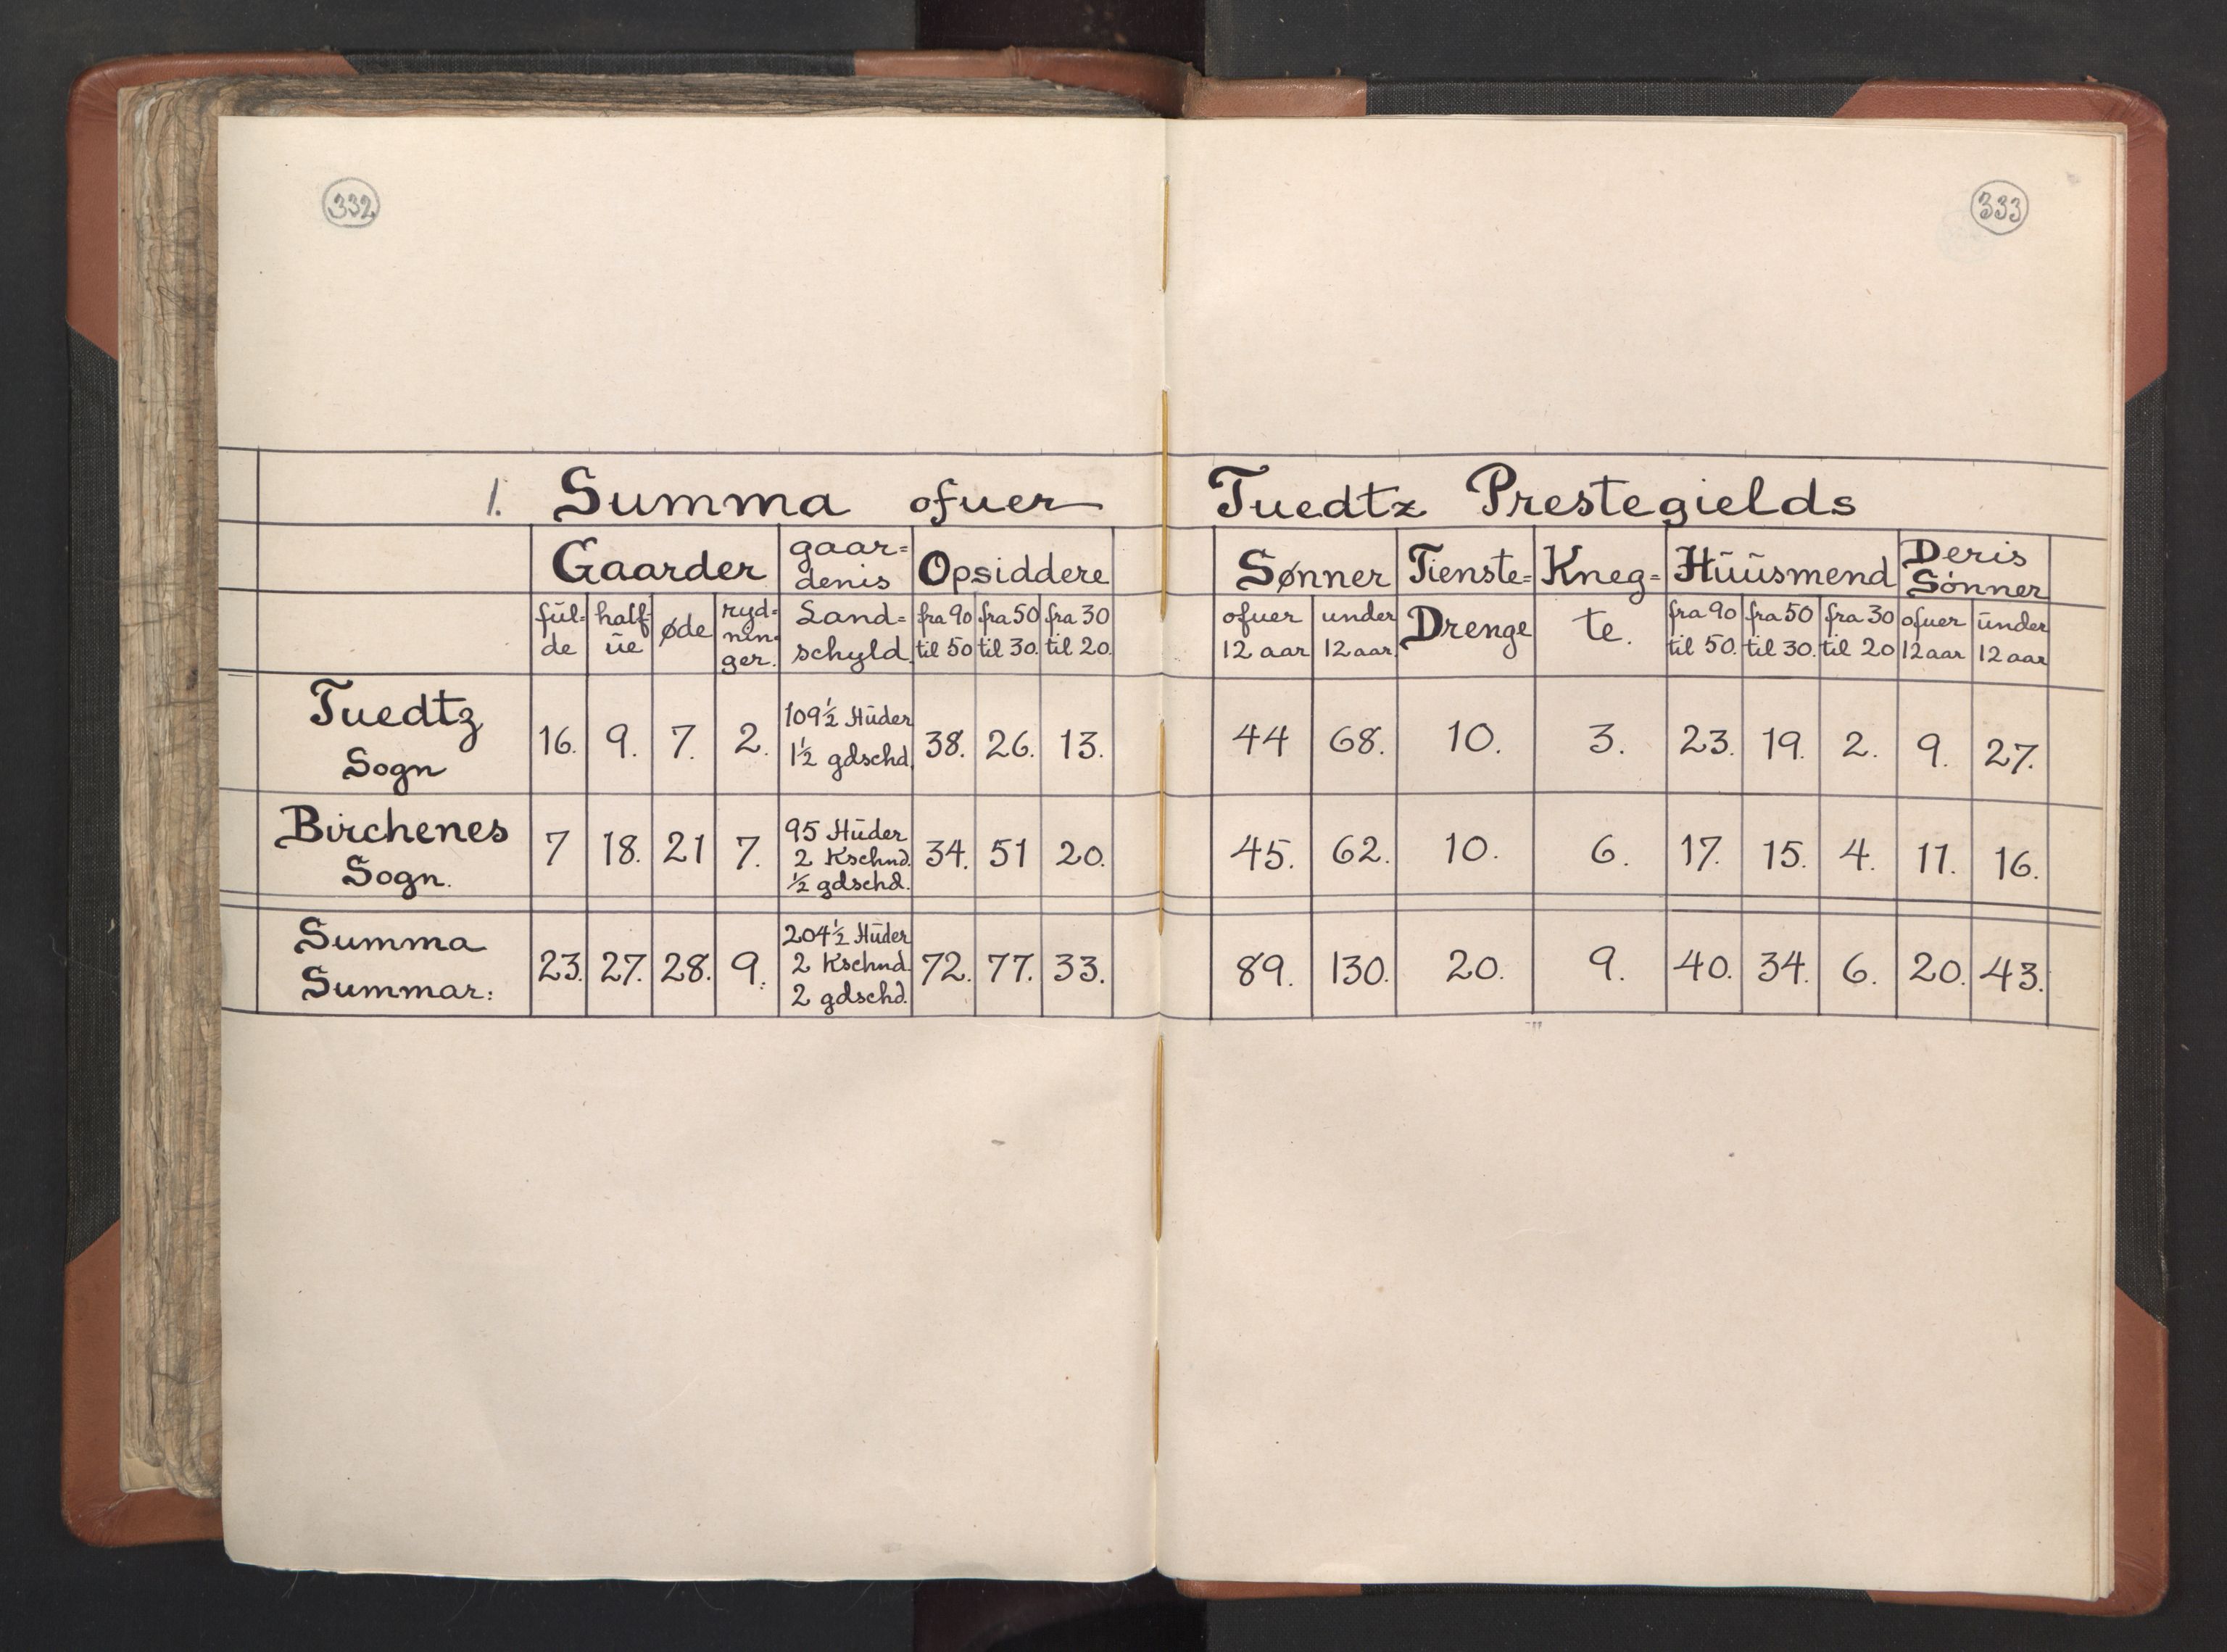 332
333
1. Summa ofuer Tuedtz Prestegields
Gaarder gaar= Opsiddere Sønner Tienste= Kneg= Hüüsmend Deris
denis Sønner
fül= half= øde ryd= Land= fra 90 fra 50 fra 30 ofuer under Drenge te. fra 90 fra 50 fra 30 ofuer ünder
de üe nin= schyld. til 50 til 30. til 20. 12 aar 12 aar. til 50. til 30. til 20 12 aar 12 aar
ger.
Tuedtz 16. 9. 7. 2. 109½ Hüder 38. 26. 13. 44 68. 10. 3. 23. 19. 2. 9. 27.
Sogn 1½ gdschd.
Birchenes 7 18. 21 7. 95 Hüder 34. 51 20. 45. 62. 10. 6. 17. 15. 4. 11. 16.
Sogn. 2 Kschnd.
½ gdschd.
Summa 23. 27. 28. 9. 204½ Hüder 72. 77. 33. 89. 130. 20. 9. 40. 34. 6. 20. 43.
Summar: 2 Kschnd.
2 gdschd.